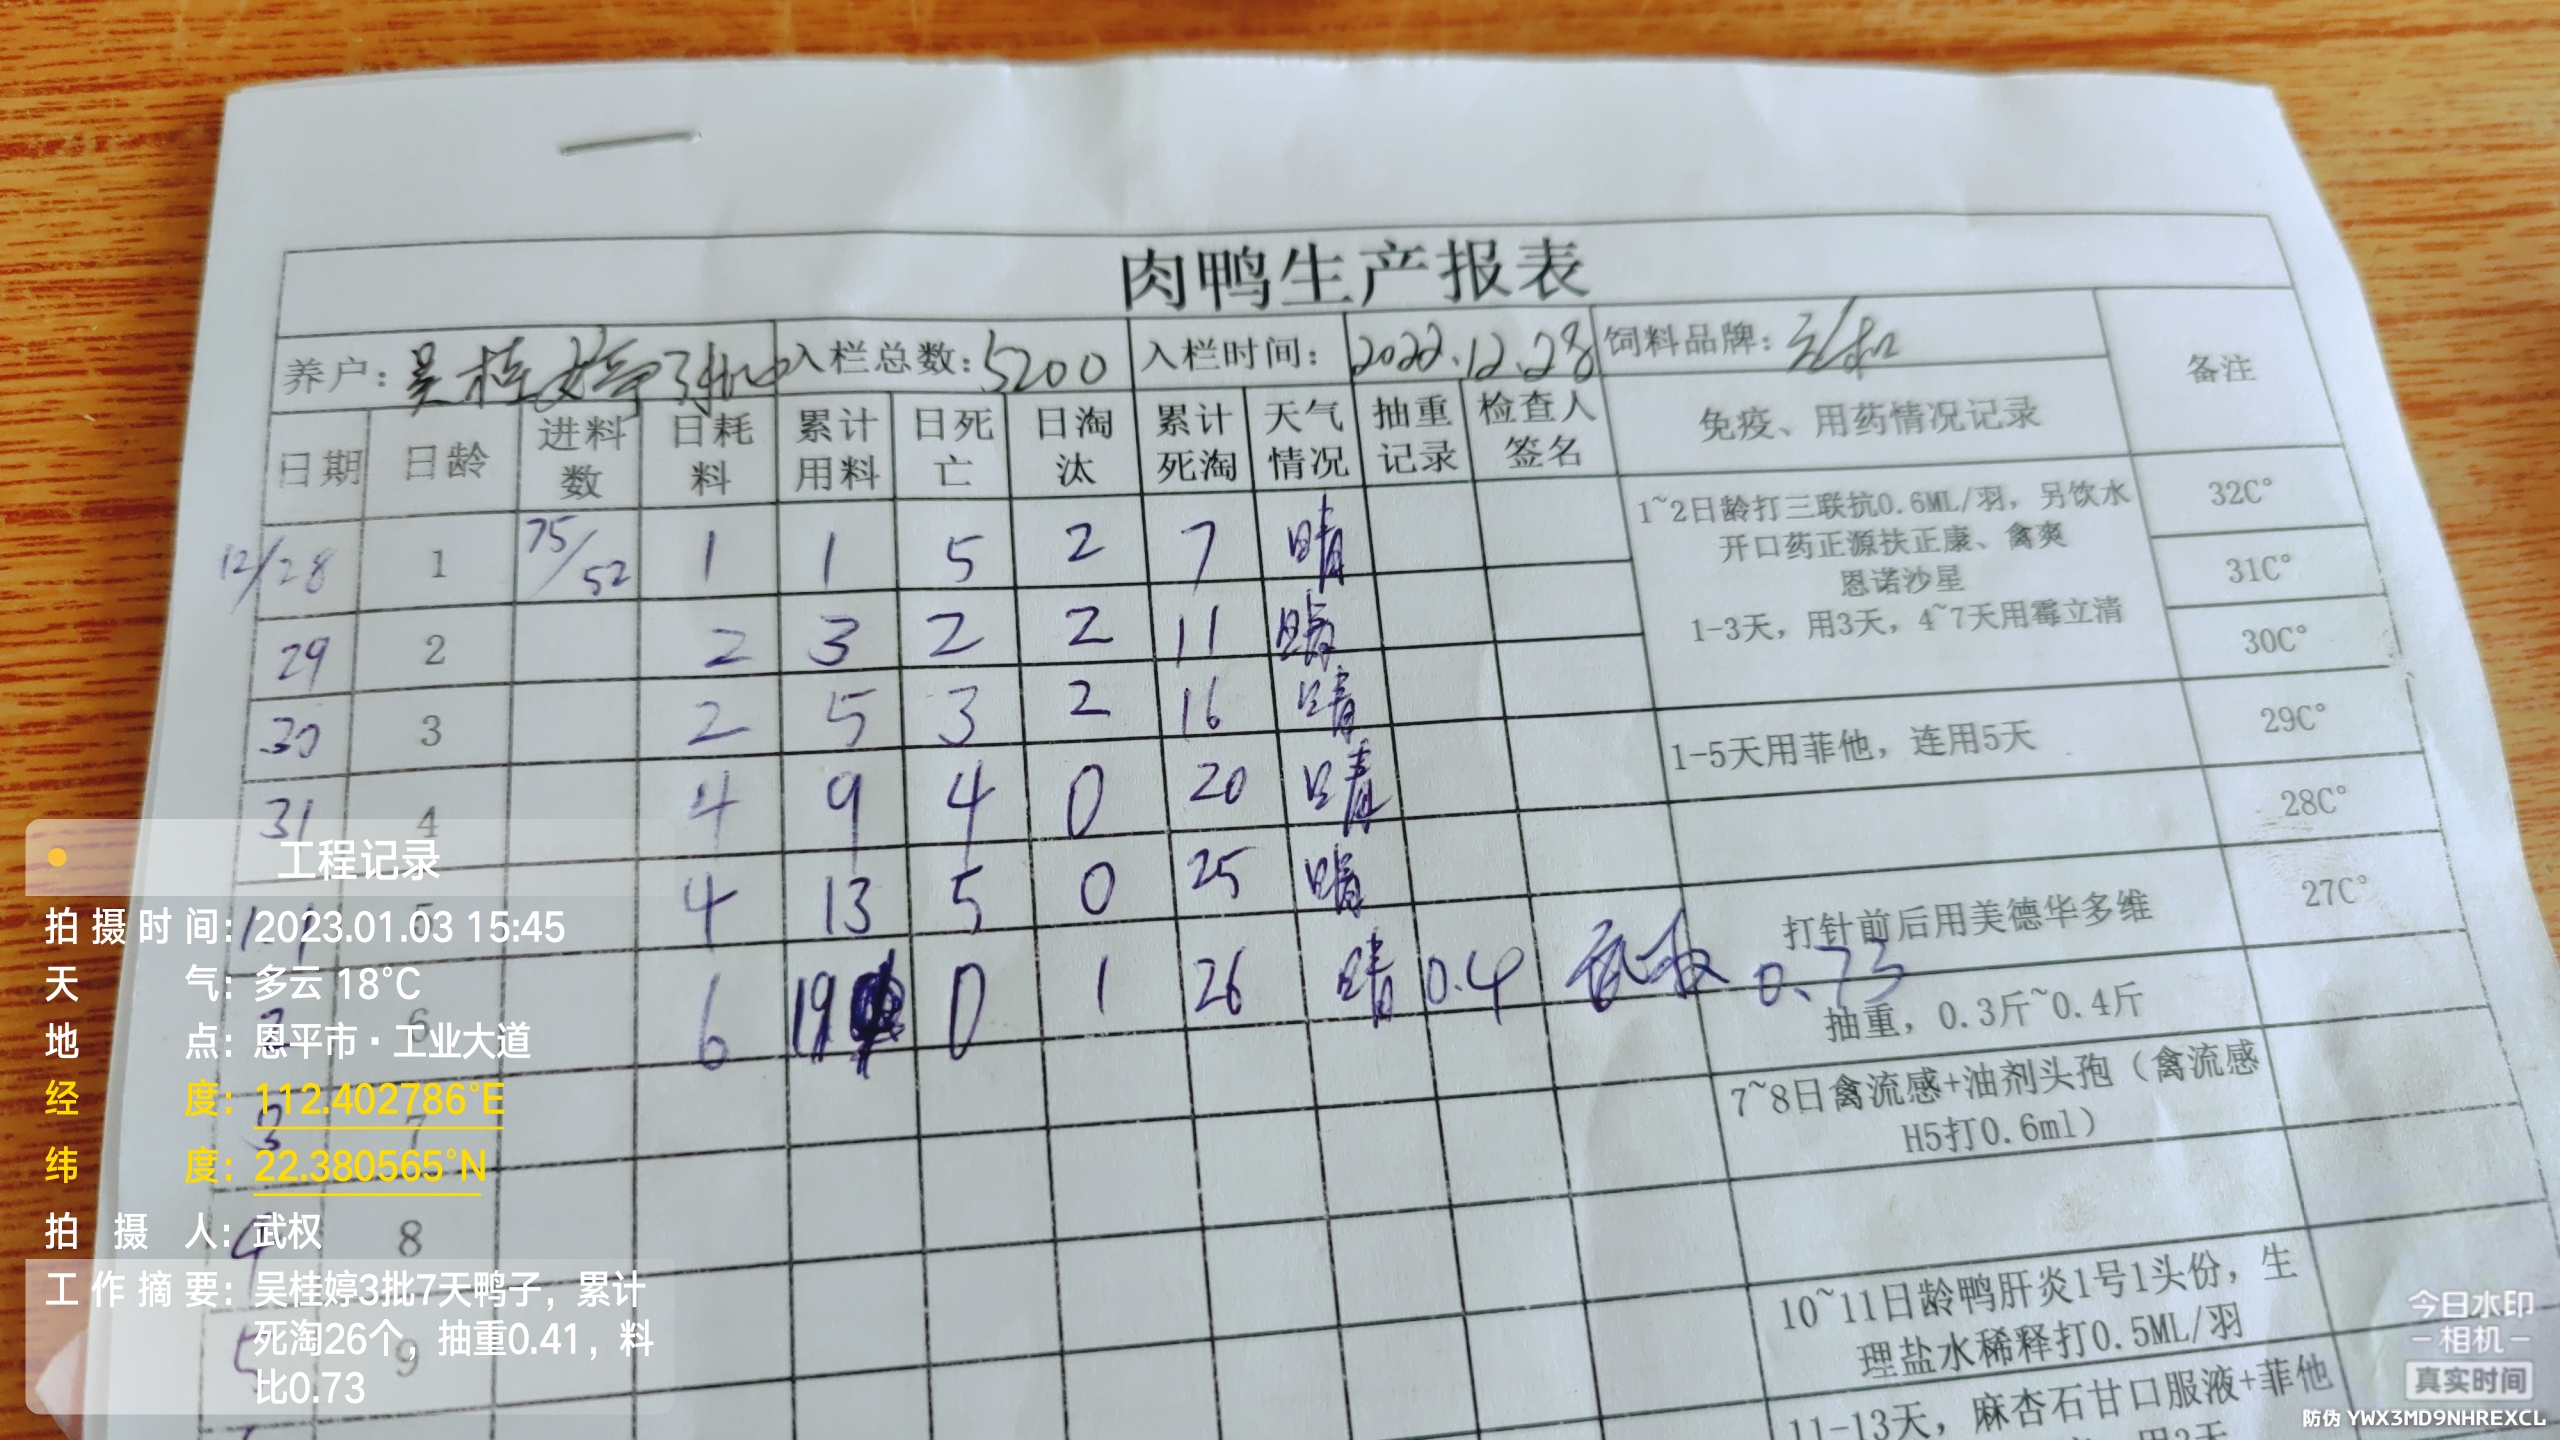 肉鸭生产报表
养户：吴桂婷3批 入栏总数：5200 入栏时间：2022.12.28 饲料品牌： 备注
日期 日龄 进料数 日耗料 累计用料 日死亡 日淘汰 累计死淘 天气情况 抽重记录 检查人签名 免疫、用药情况记录
12/28 1 75/52 1 1 5 2 7 晴 32C°
29 2 2 3 2 2 11 晴 31C°
30 3 2 5 3 2 16 晴 30C°
31 4 4 9 4 0 20 晴 29C°
1.1 5 4 13 5 0 25 晴 28C°
2 6 6 19 0 1 26 晴 0.4 武权 0.73 27C°
3 7
4 8
5 9
1~2日龄打三联抗0.6ML/羽，另饮水
开口药正源扶正康、禽爽
恩诺沙星
1-3天，用3天，4~7天用霉立清
1-5天用菲他，连用5天
打针前后用美德华多维
抽重，0.3斤~0.4斤
7~8日禽流感+油剂头孢（禽流感
H5打0.6ml）
10~11日龄鸭肝炎1号1头份，生
理盐水稀释打0.5ML/羽
11-13天，麻杏石甘口服液+菲他
工程记录
拍摄时间：2023.01.03 15:45
天气：多云 18°C
地点：恩平市·工业大道
经度：112.402786°E
纬度：22.380565°N
拍摄人：武权
工作摘要：吴桂婷3批7天鸭子，累计
死淘26个，抽重0.41，料
比0.73
今日水印
相机
真实时间
防伪 YWX3MD9NHREXCL